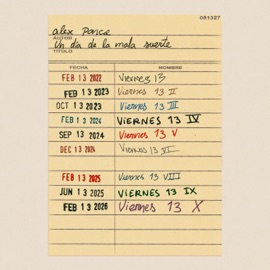 081327
alex Ponce
AUTOR
Un día de la mala suerte
TÍTULO
FECHA NOMBRE
FEB 13 2022 Viernes 13
FEB 13 2023 Viernes 13 II
OCT 13 2023 Viernes 13 III
FEB 13 2024 VIERNES 13 IV
SEP 13 2024 Viernes 13 V
DEC 13 2024 Viernes 13 VI
FEB 13 2025 Viernes 13 VIII
JUN 13 2025 VIERNES 13 IX
FEB 13 2026 Viernes 13 X